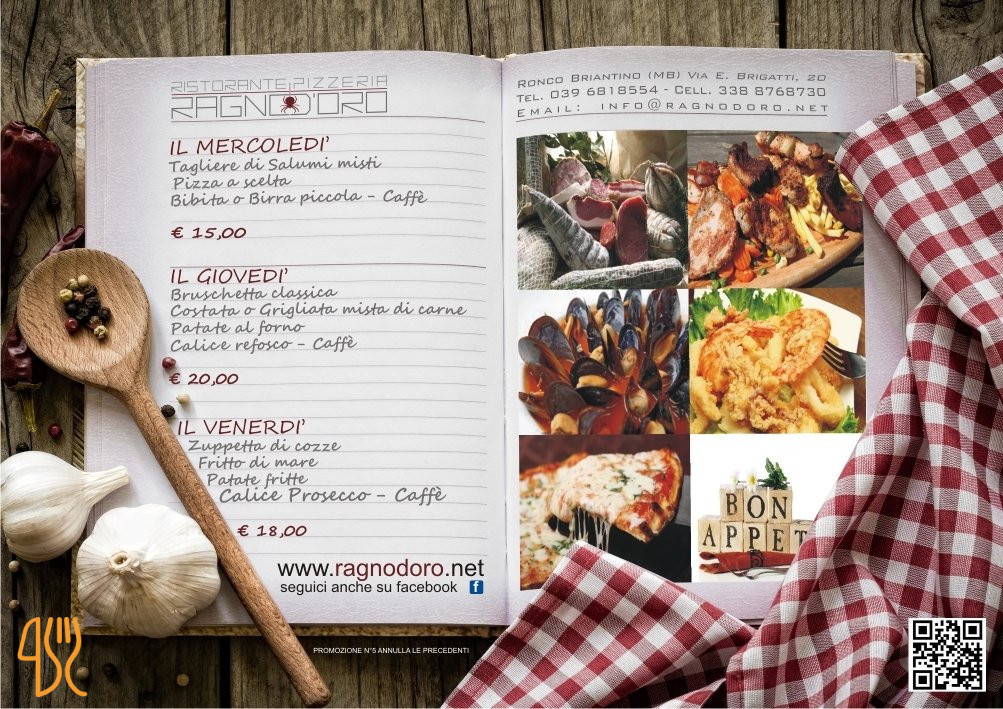 RISTORANTE PIZZERIA
RAGNO D'ORO
IL MERCOLEDI'
Tagliere di Salumi misti
Pizza a scelta
Bibita o Birra piccola - Caffè
€ 15,00
IL GIOVEDI'
Bruschetta classica
Costata o Grigliata mista di carne
Patate al forno
Calice refosco - Caffè
€ 20,00
IL VENERDI'
Zuppetta di cozze
Fritto di mare
Patate fritte
Calice Prosecco - Caffè
€ 18,00
www.ragnodoro.net
seguici anche su facebook f
PROMOZIONE N°5 ANNULLA LE PRECEDENTI
RONCO BRIANTINO (MB) VIA E. BRIGATTI, 20
TEL. 039 6818554 - CELL. 338 8768730
EMAIL: INFO@RAGNODORO.NET
BON
APPET